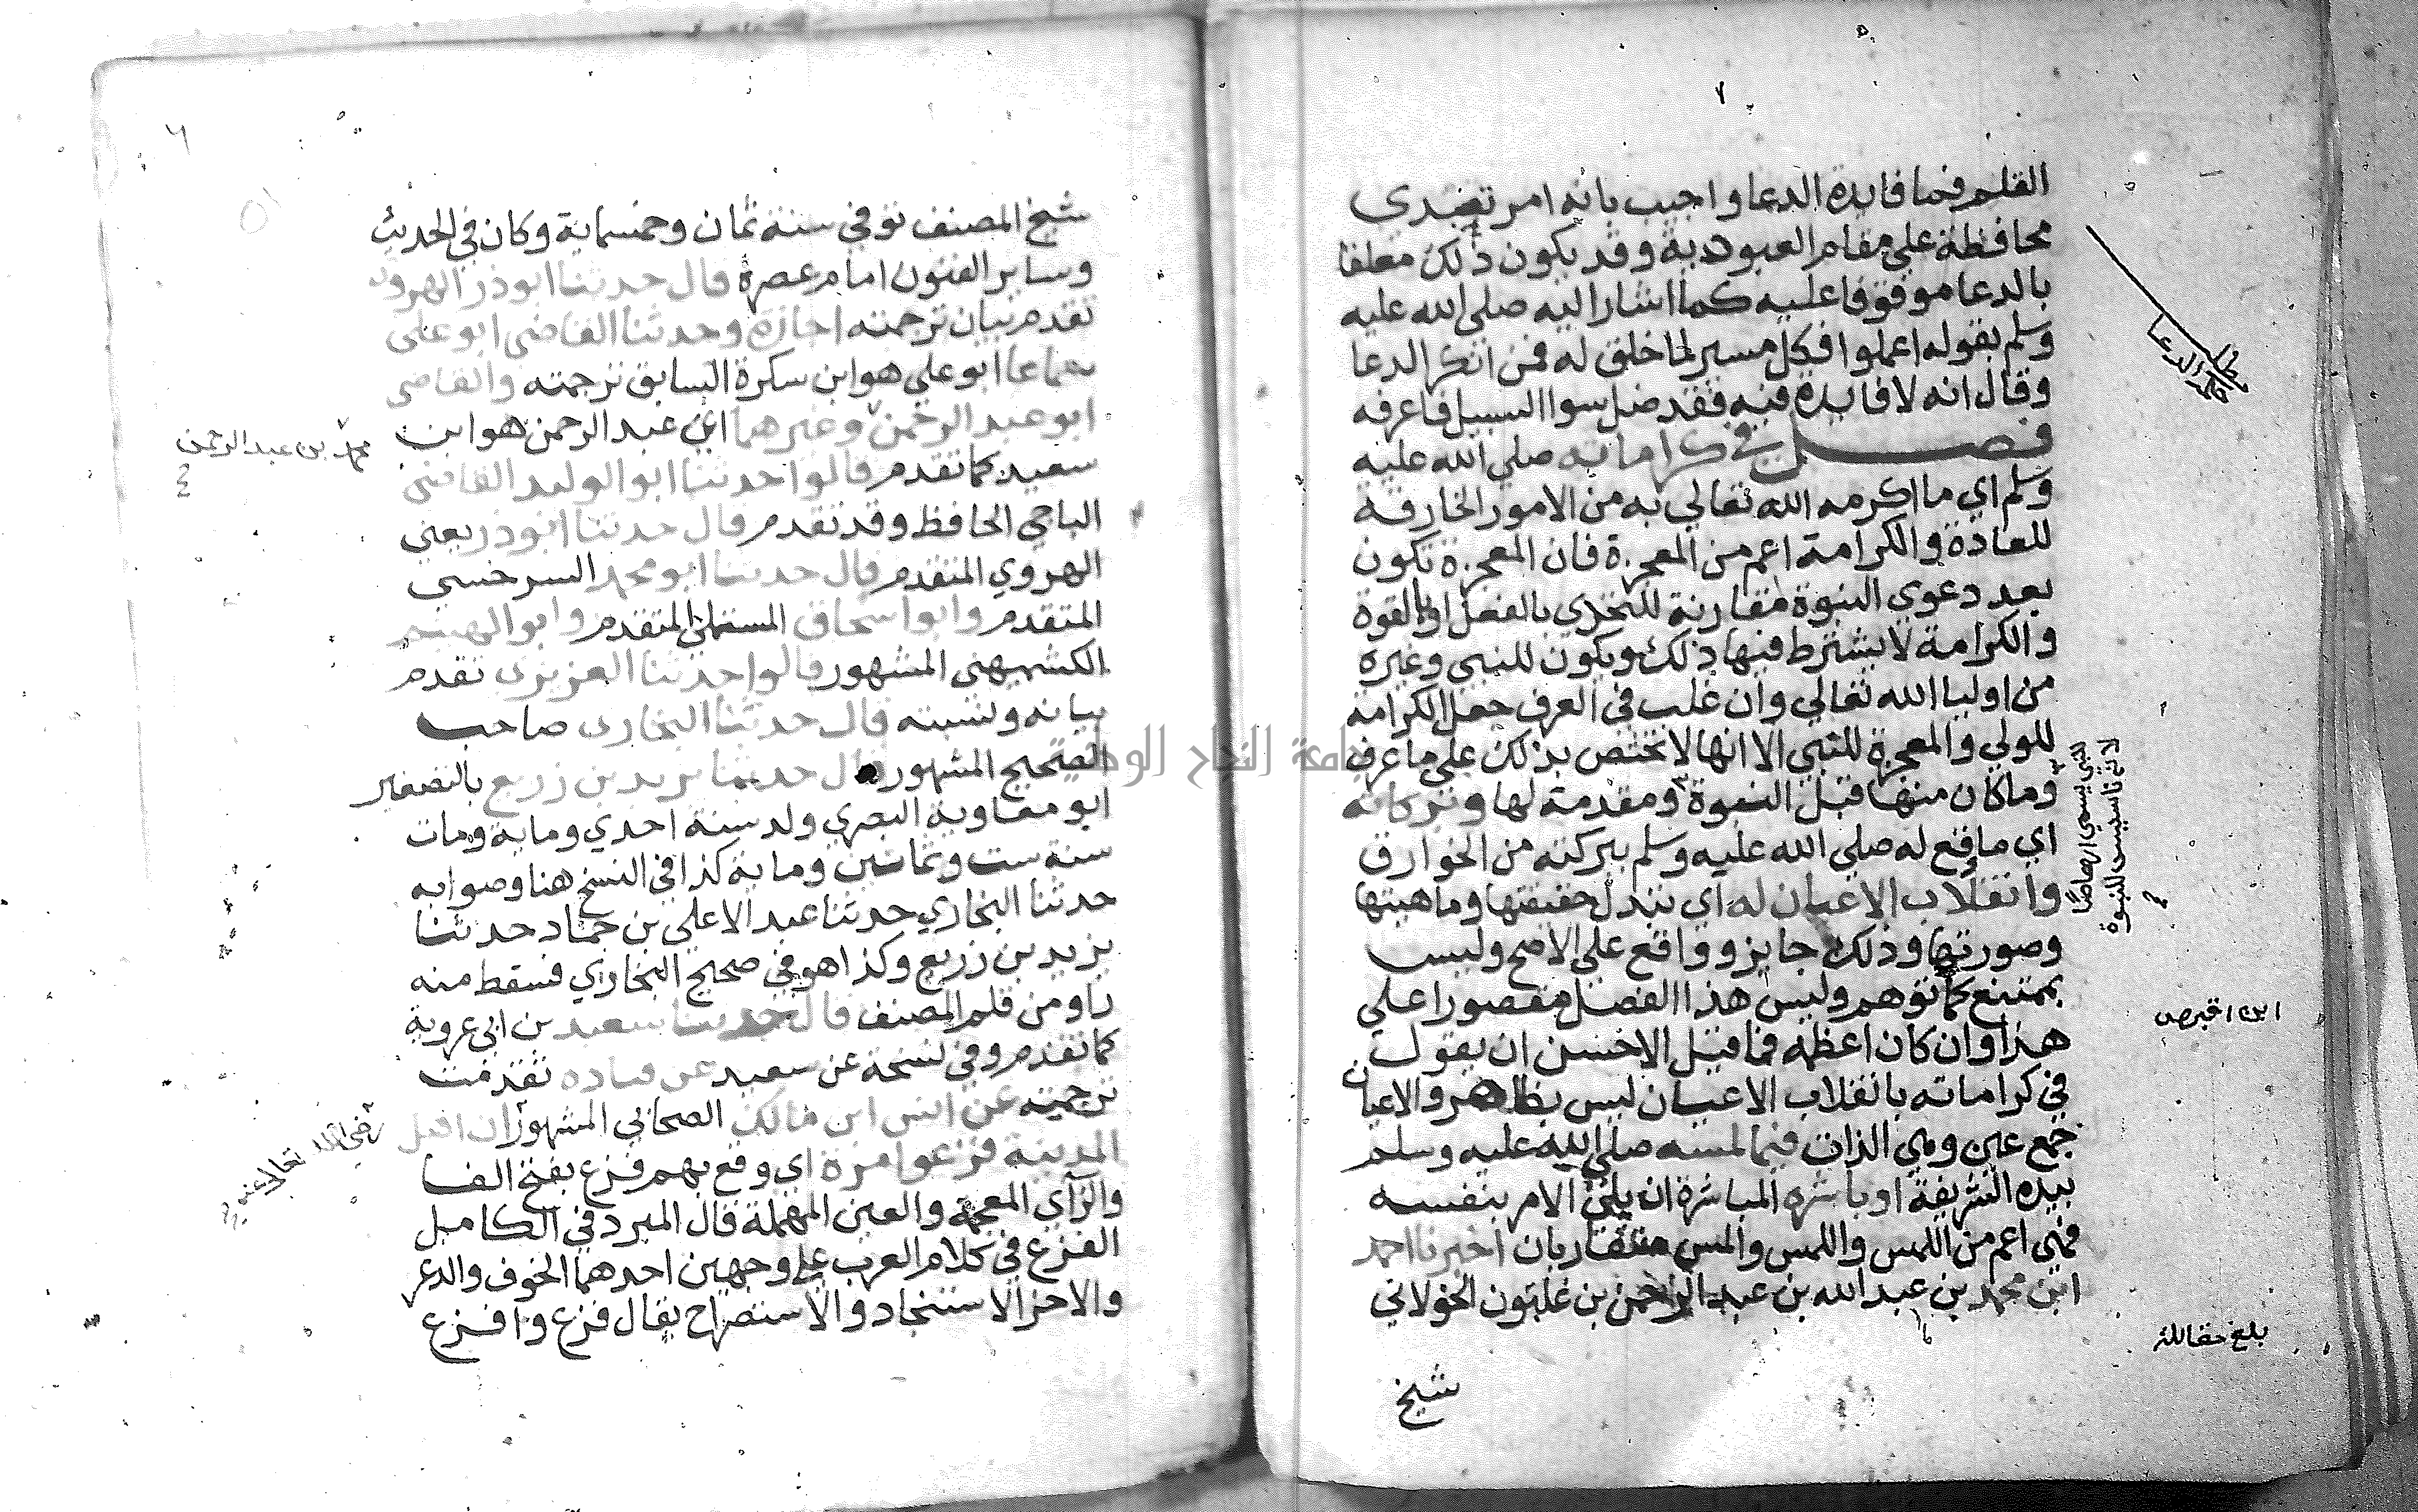 القلم فما فايدة الدعا واجيب بانه امر تعبدي
محافظة علي مقام العبودية وقد يكون ذلك معلقا
بالدعا موقوفا عليه كما اشار اليه صلي الله عليه
وسلم بقوله اعملوا فكل ميسر لما خلق له فمن انكر الدعا
وقال انه لا فايدة فيه فقد ضل سوا السبيل فاعرفه
فصل في كراماته صلي الله عليه
وسلم اي ما اكرمه الله تعالي به من الامور الخارقة
للعادة والكرامة اعم من المعجزة فان المعجزة تكون
بعد دعوي النبوة مقارنة للتحدي بالفعل او بالقوة
والكرامة لا يشترط فيها ذلك ويكون للنبي وغيره
من اوليا الله تعالي وان غلب في العرف جعل الكرامة
للولي والمعجزة للنبي الا انها لا تختص بذلك علي ما عرف
وما كان منها قبل النبوة ومقدمة لها وبركاته
اي ما وقع له صلي الله عليه وسلم ببركته من الخوارق
وانقلاب الاعيان له اي تبدل حقيقتها وماهيتها
وصورتها وذلك جايز وواقع علي الاصح وليس
بممتنع كما توهم وليس هذا الفصل مقصورا علي
هذا وان كان اعظمه فما قيل الاحسن ان يقول
في كراماته بانقلاب الاعيان ليس بظاهر والاعيان
جمع عين وهي الذات فيما لمسه صلي الله عليه وسلم
بيده الشريفة او باشره المباشرة ان يلي الامر بنفسه
فهي اعم من اللمس واللمس والمس متقاربان اخبرنا احمد
ابن محمد بن عبد الله بن عبد الرحمن بن غلبون الخولاني
شيخ
الذي يسمي ارهاصا
لانه تاسيس للنبوة
بلغ مقابلة
٦
شيخ المصنف توفي سنة ثمان وخمسماية وكان في الحديث
وساير الفنون امام عصره قال حدثنا ابو ذر الهروي
تقدم بيان ترجمته اجازة وحدثنا القاضي ابو علي
سماعا ابو علي هو ابن سكرة السابق ترجمته والقاضي
ابو عبد الرحمن وغيرهما اي عبد الرحمن هو ابن
سعيد كما تقدم قالوا حدثنا ابو الوليد القاضي
الباجي الحافظ وقد تقدم قال حدثنا ابو ذر يعني
الهروي المتقدم قال حدثنا ابو محمد السرخسي
المتقدم وابو اسحاق المستملي المتقدم وابو الهيثم
الكشميهني المشهور قالوا حدثنا الفربري تقدم
بيانه ونسبته قال حدثنا البخاري صاحب
الصحيح المشهور قال حدثنا يزيد بن زريع بالتصغير
ابو معاوية البصري ولد سنة احدي وماية ومات
سنة ست وثمانين وماية كذا في النسخ هنا وصوابه
حدثنا البخاري حدثنا عبد الاعلي بن حماد حدثنا
يزيد بن زريع وكذا هو في صحيح البخاري فسقط منه
راو من قلم المصنف قال حدثنا سعيد بن ابي عروبة
كما تقدم وفي نسخة عن سعيد عن قتادة تقدمت
ترجمته عن انس ابن مالك الصحابي المشهور ان اهل
المدينة فزعوا مرة اي وقع بهم فزع بفتح الفا
والزاي المعجمة والعين المهملة قال المبرد في الكامل
الفزع في كلام العرب علي وجهين احدهما الخوف والذعر
والاخر الاستنجاد والاستصراح يقال فزع وافزع
محمد بن عبد الرحمن
رضي الله تعالي عنه
جامعة النجاح الوطنية